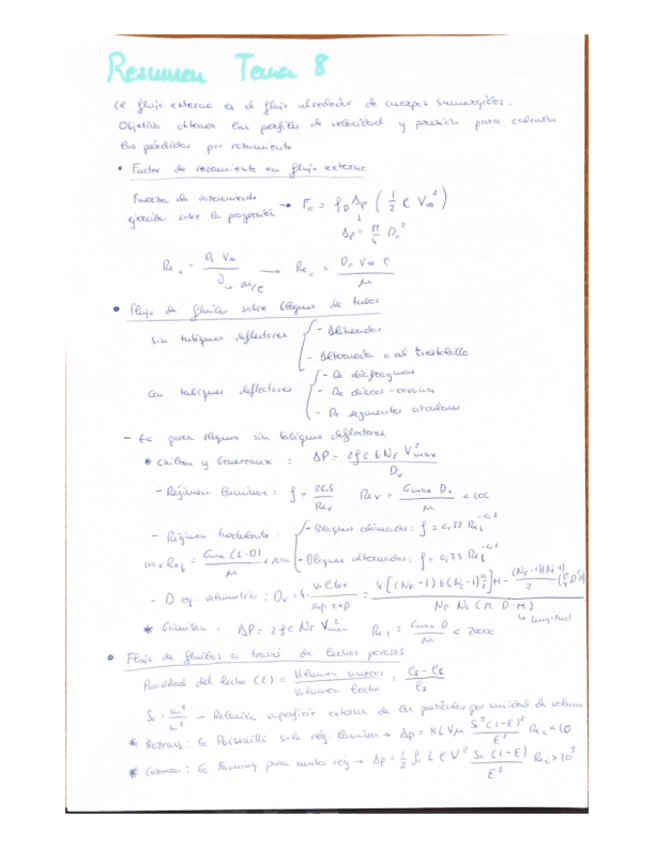 Resumen Tema 8
el flujo externo es el flujo alrededor de cuerpos sumergidos.
Objetivo obtener los perfiles de velocidad y presión para calcular
las pérdidas por rozamiento
* Factor de rozamiento en flujo externo
Fuerza de rozamiento
ejercida sobre la proyección → F_D = f_D A_p (1/2 ρ V∞²)
A_p = π/4 D_o²
Re_o = D_o V∞ / → Re_o = D_o V∞ ρ / μ
μ/ρ
• Flujo de fluidos sobre bloques de tubos
sin tabiques deflectores { - Alineados
- Alternada o al tresbolillo
Con tabiques deflectores { - De diafragmas
- De discos-corona
- De segmentos circulares
- Ec para bloques sin tabiques deflectores
* Chilton y Genereaux : ΔP = 2 f ρ 6 N_F V²max / D_v
- Régimen laminar : f = 26,5 / Re_v Re_v = Gmax D_v / μ < 100
- Régimen turbulento : { - Bloques alineados : f = 0,33 Re_t^-0,2
100 < Re_t = Gmax (L-D) / μ - Bloques alternados : f = 0,75 Re_t^-0,2
- D. eq. volumétrico : D_v = 4 · V. libre / sup. exp.
longitud
* Grimison : ΔP = 2 f ρ N_F V²max Re = Gmax D / μ < 20000
• Flujo de fluidos a través de lechos porosos
Porosidad del lecho (ε) = Volumen huecos / Volumen lecho
= m² / m³ → Relación superficie externa de las partículas por unidad de volumen
* Kozeny : Ec Poiseuille solo rég. laminar → Δp = K L V μ S²(1-ε)² / ε³ Re < 10
* Carman : Ec Fanning para ambos rég → Δp = 1/2 f L ρ V² (1-ε) / ε³ Re > 10²